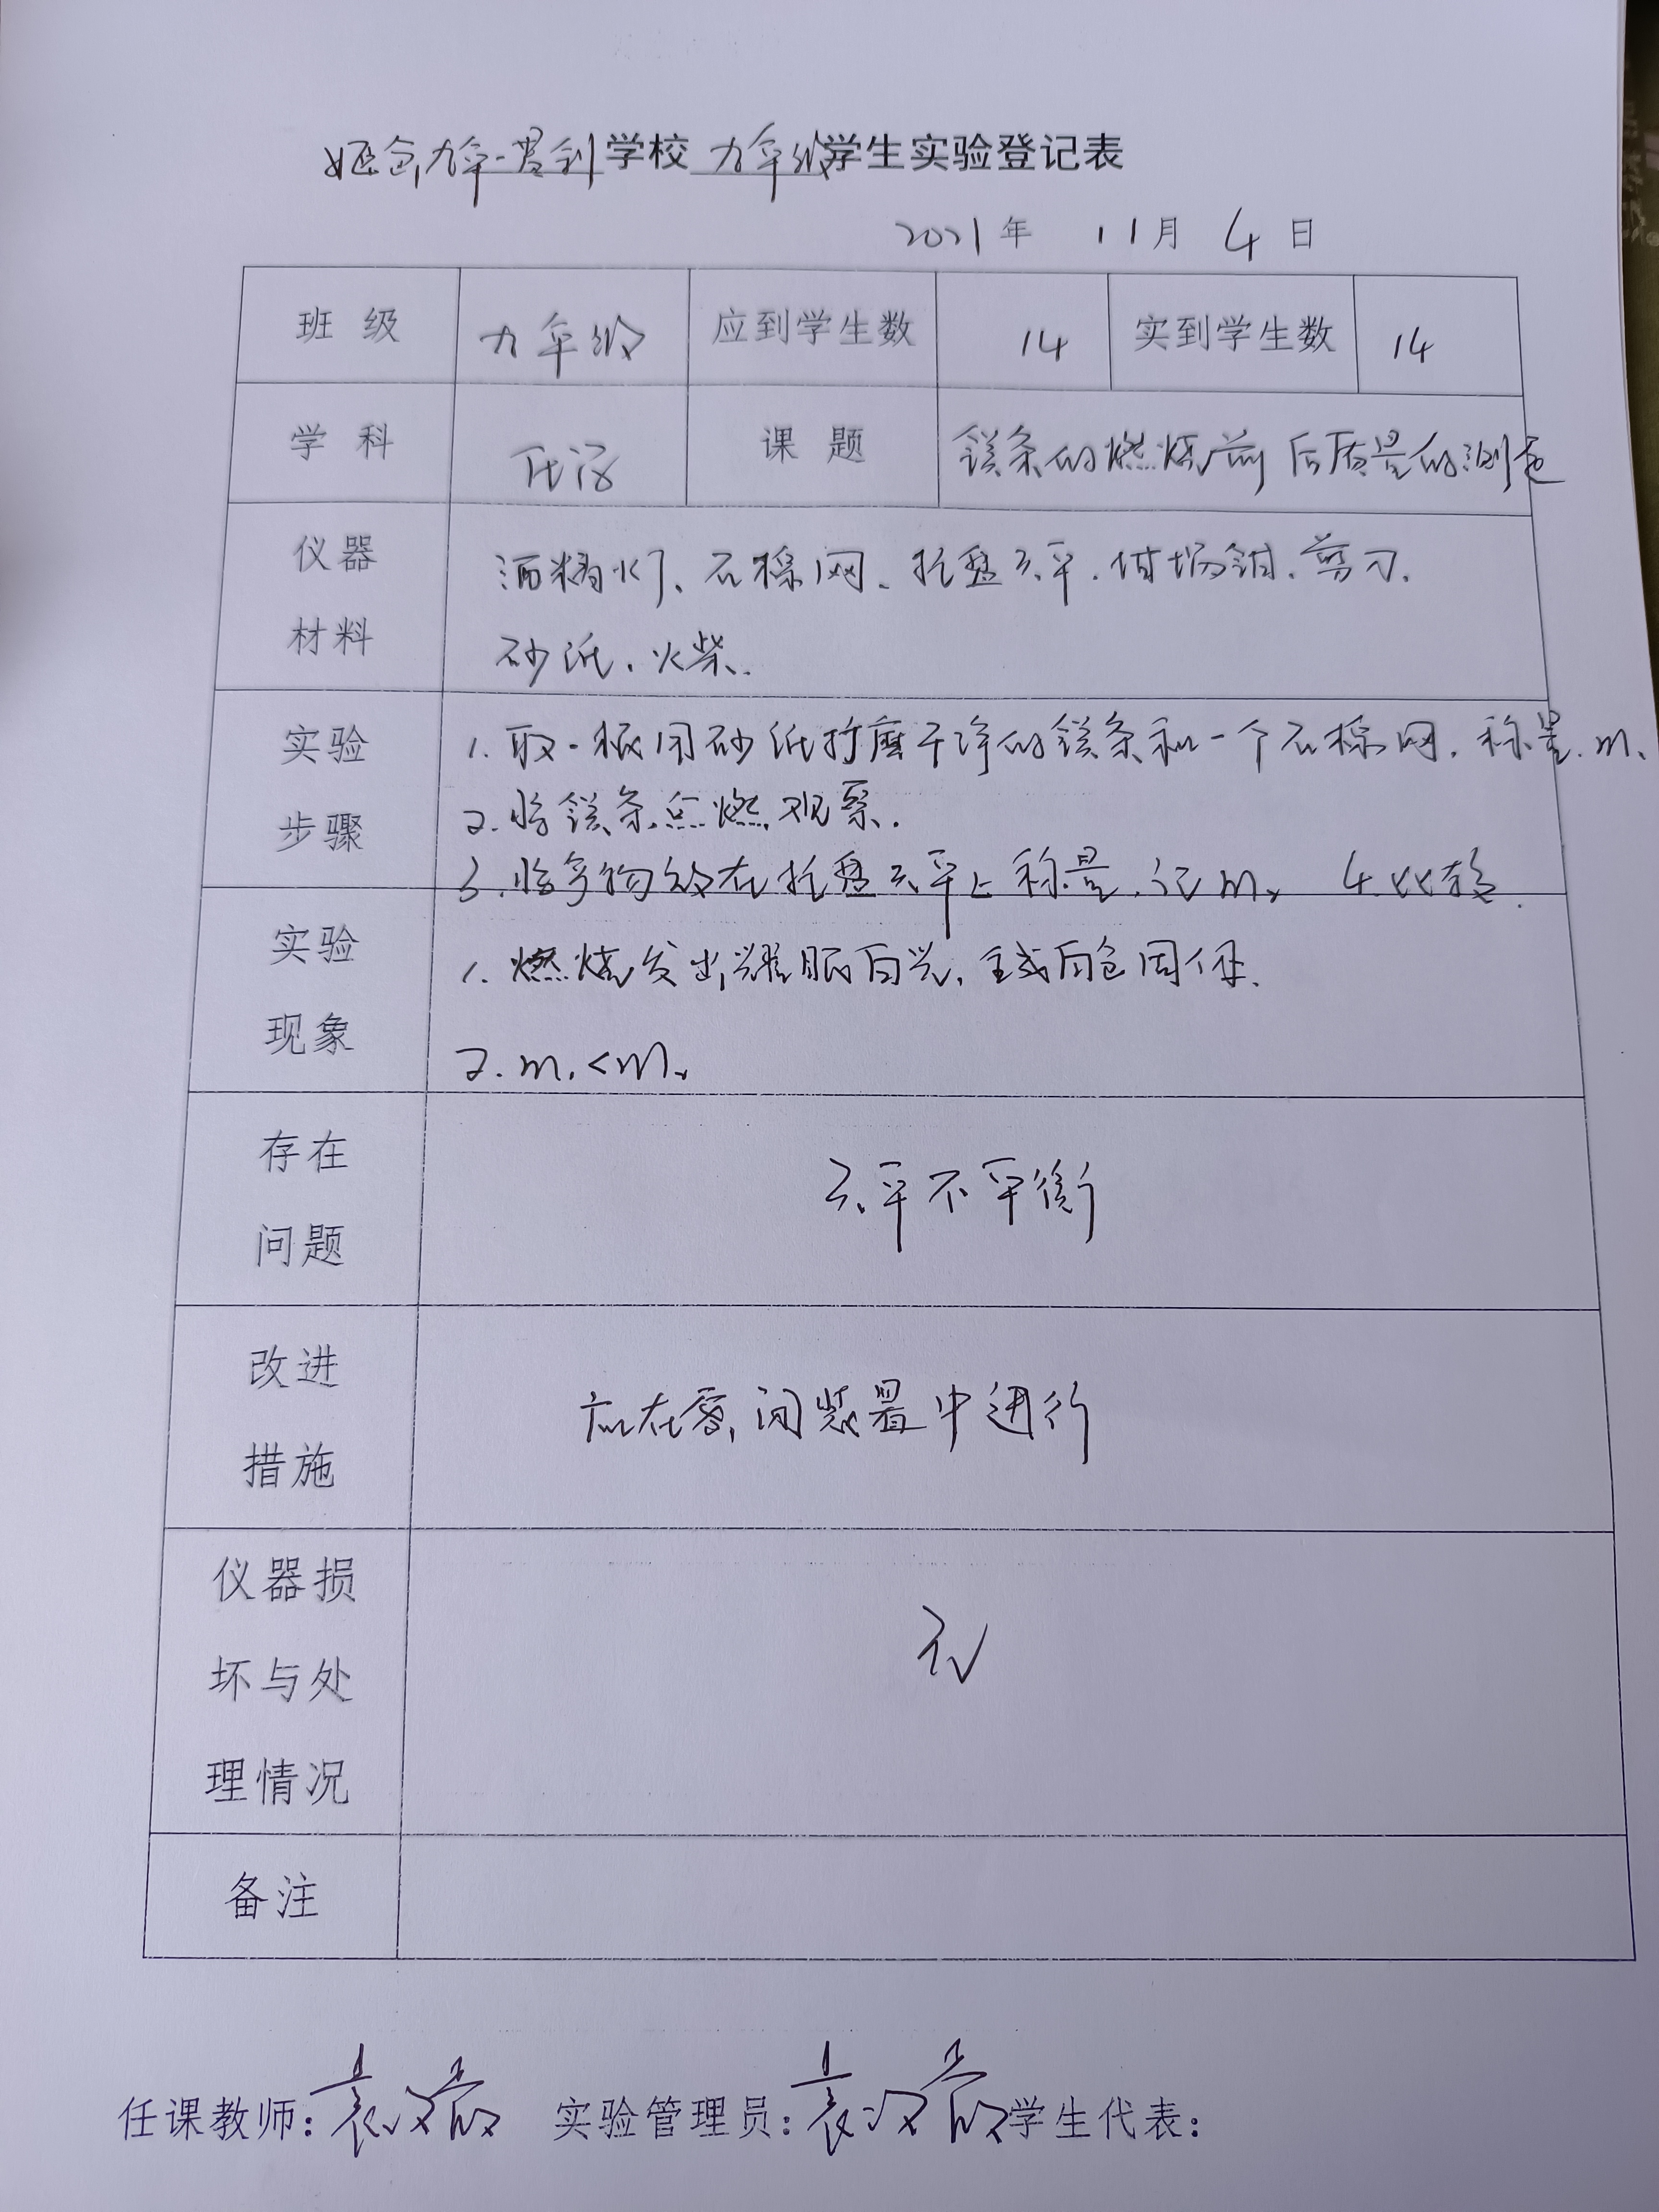 姬仓九年一贯制学校 九年级学生实验登记表
2021年 11月 4日
班级 九年级 应到学生数 14 实到学生数 14
学科 化学 课题 镁条的燃烧前后质量的测定
仪器
材料
酒精灯、石棉网、托盘天平、坩埚钳、剪刀、
砂纸、火柴.
实验
步骤
1. 取一根用砂纸打磨干净的镁条和一个石棉网,称量.m₁
2. 将镁条点燃,观察.
3. 将产物放在托盘天平上称量,记m₂ 4. 比较.
实验
现象
1. 燃烧发出耀眼白光,生成白色固体.
2. m₁<m₂
存在
问题
天平不平衡
改进
措施
应在密闭装置中进行
仪器损
坏与处
理情况
无
备注
任课教师: 实验管理员: 学生代表: